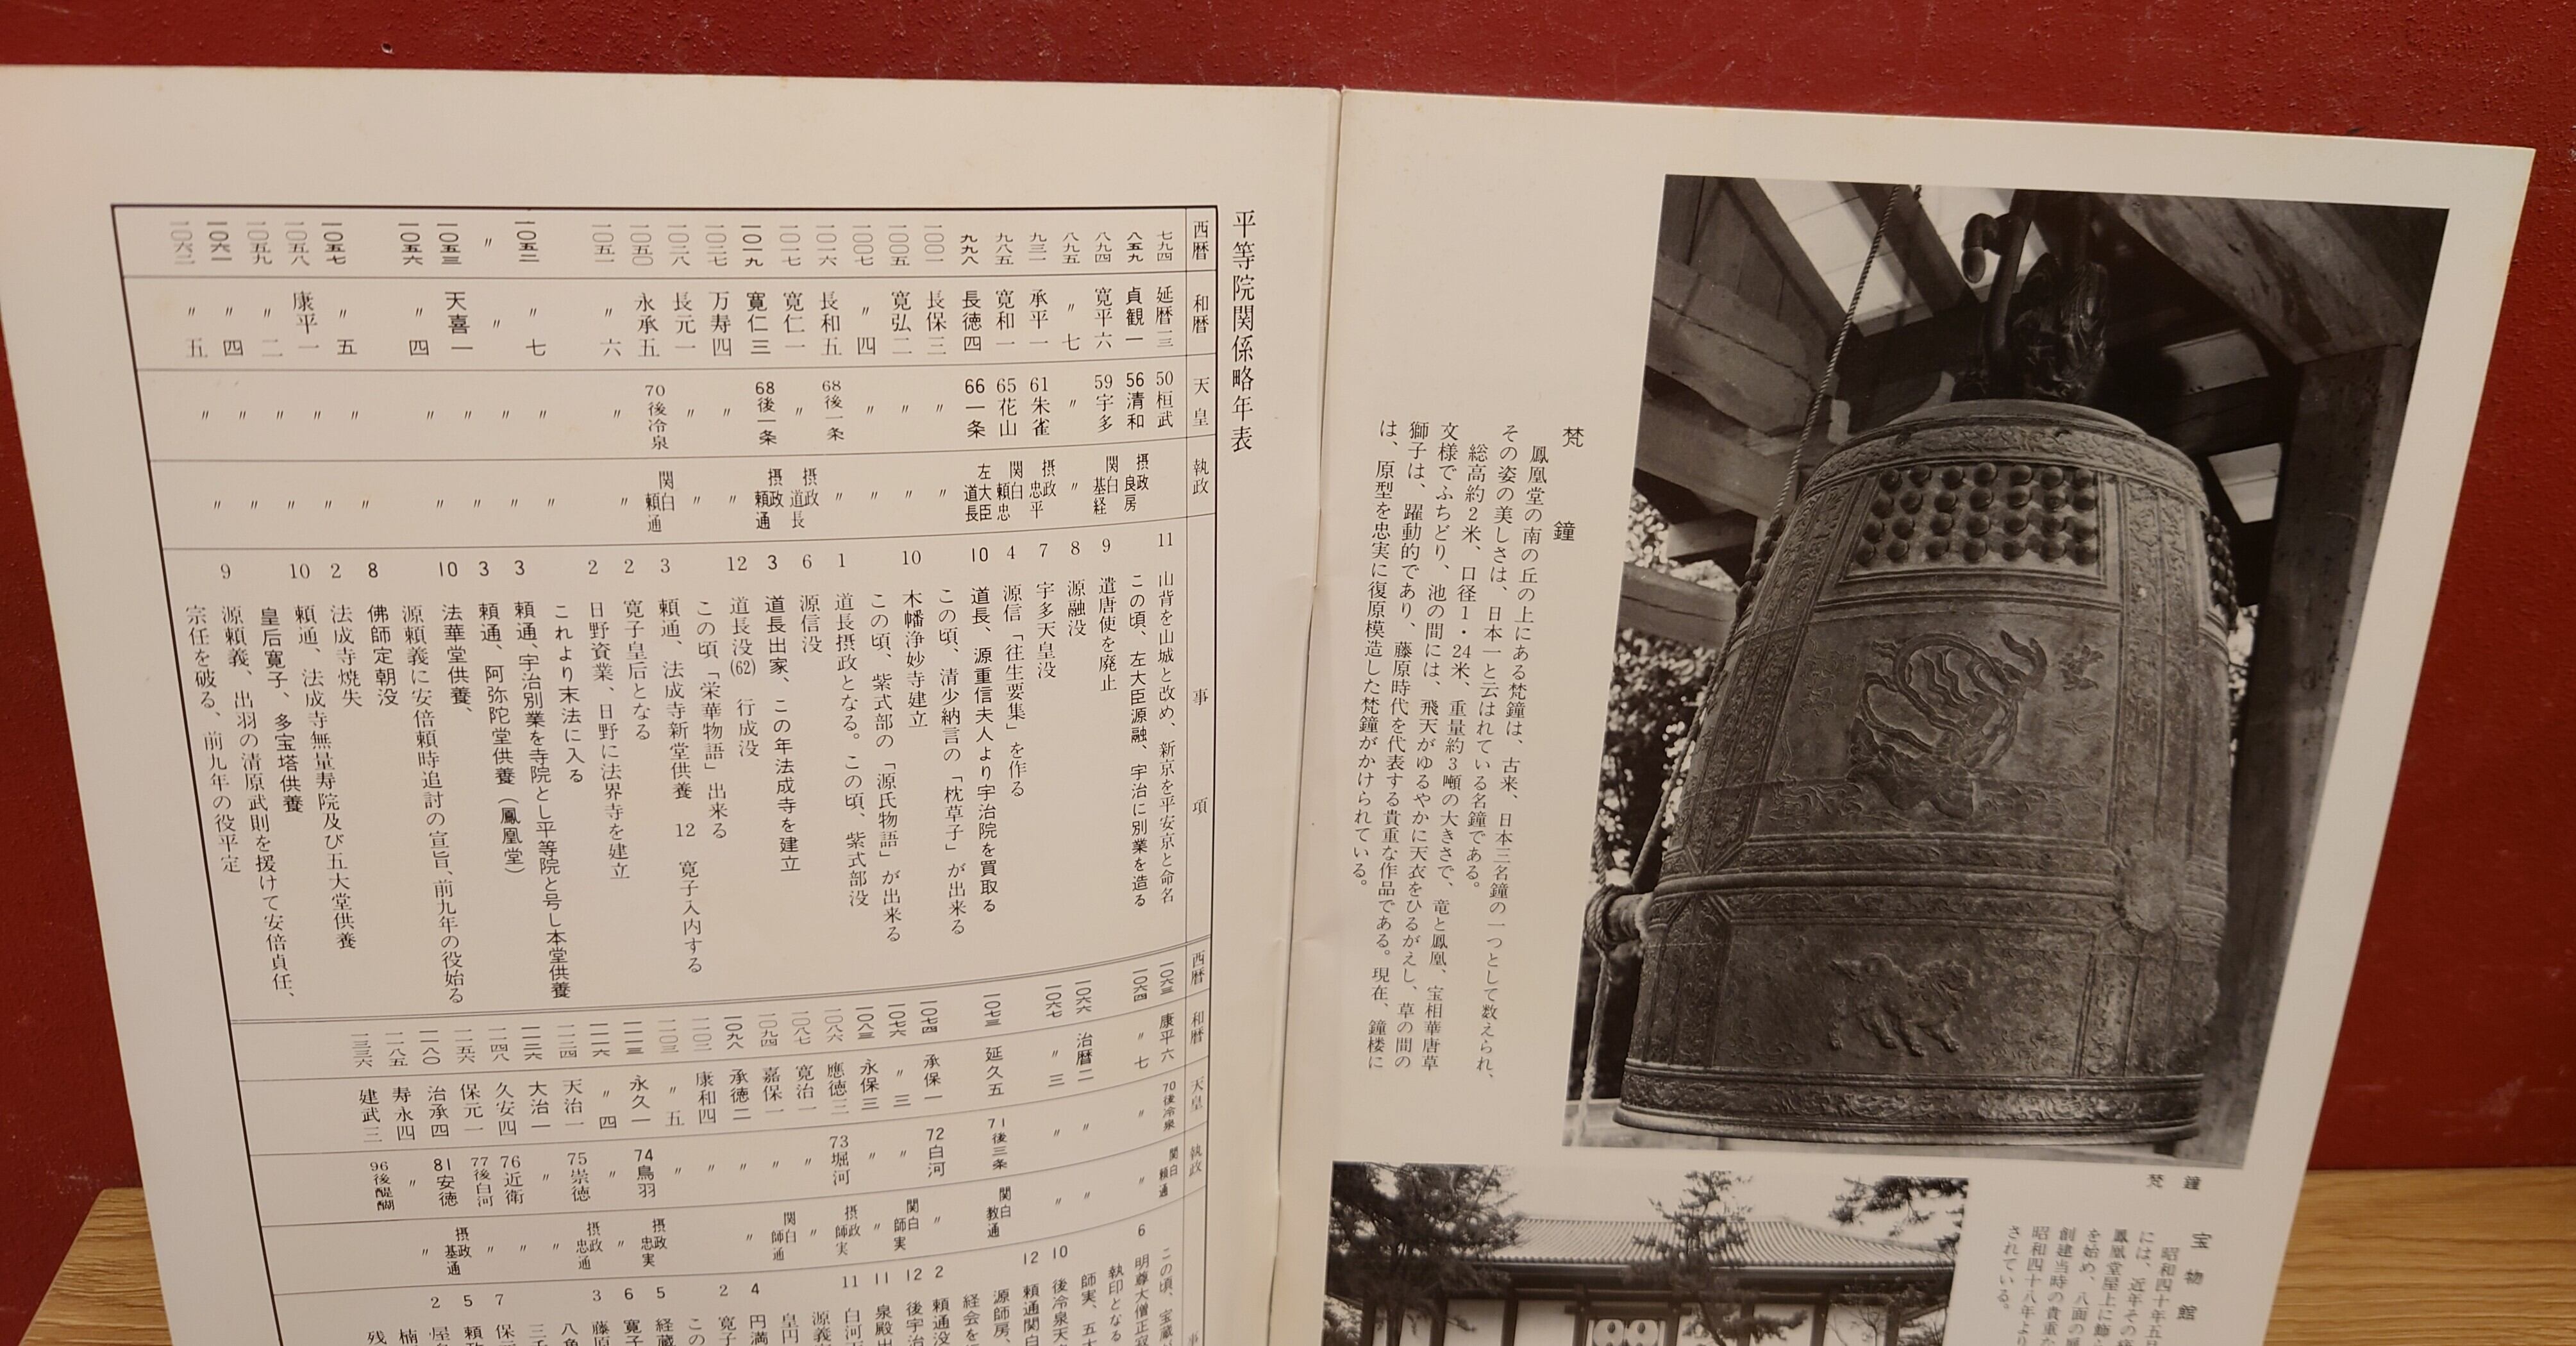 梵鐘
鳳凰堂の南の丘の上にある梵鐘は、古来、日本三名鐘の一つとして数えられ、
その姿の美しさは、日本一と云はれている名鐘である。
総高約2米、口径1・24米、重量約3噸の大きさで、竜と鳳凰、宝相華唐草
文様でふちどり、池の間には、飛天がゆるやかに天衣をひるがえし、草の間の
獅子は、躍動的であり、藤原時代を代表する貴重な作品である。現在、鐘楼に
は、原型を忠実に復原模造した梵鐘がかけられている。
梵鐘
宝物館
昭和四十年五月
には、近年その
鳳凰堂屋上に飾
を始め、八面の
創建当時の貴重な
昭和四十八年より
されている。
平等院関係略年表
西暦 和暦 天皇 執政 事項
七九四 延暦一三 50桓武 11 山背を山城と改め、新京を平安京と命名
八五九 貞観一 56清和 摂政良房 この頃、左大臣源融、宇治に別業を造る
八九四 寛平六 59宇多 関白基経 9 遣唐使を廃止
八九五 〃七 〃 〃 8 源融没
九三一 承平一 61朱雀 摂政忠平 7 宇多天皇没
九八五 寛和一 65花山 関白頼忠 4 源信「往生要集」を作る
九九八 長徳四 66一条 左大臣道長 10 道長、源重信夫人より宇治院を買取る
一〇〇一 長保三 〃 〃 この頃、清少納言の「枕草子」が出来る
一〇〇五 寛弘二 〃 〃 10 木幡浄妙寺建立
一〇〇七 〃四 〃 〃 この頃、紫式部の「源氏物語」が出来る
一〇一六 長和五 68後一条 〃 1 道長摂政となる。この頃、紫式部没
一〇一七 寛仁一 〃 摂政道長 6 源信没
一〇一九 寛仁三 68後一条 摂政頼通 3 道長出家、この年法成寺を建立
一〇二七 万寿四 〃 〃 12 道長没(62) 行成没
一〇二八 長元一 〃 〃 この頃「栄華物語」出来る
一〇五〇 永承五 70後冷泉 関白頼通 3 頼通、法成寺新堂供養 12 寛子入内する
一〇五一 〃六 〃 〃 2 寛子皇后となる
2 日野資業、日野に法界寺を建立
一〇五二 〃七 〃 〃 これより末法に入る
〃 〃 〃 〃 3 頼通、宇治別業を寺院とし平等院と号し本堂供養
一〇五三 天喜一 〃 〃 3 頼通、阿弥陀堂供養（鳳凰堂）
一〇五六 〃四 〃 〃 10 法華堂供養、
源頼義に安倍頼時追討の宣旨、前九年の役始る
一〇五七 〃五 〃 〃 8 佛師定朝没
一〇五八 康平一 〃 〃 2 法成寺焼失
一〇五九 〃二 〃 〃 10 頼通、法成寺無量寿院及び五大堂供養
一〇六一 〃四 〃 〃 皇后寛子、多宝塔供養
一〇六二 〃五 〃 〃 9 源頼義、出羽の清原武則を援けて安倍貞任、
宗任を破る、前九年の役平定
西暦 和暦 天皇 執政 事
一〇六三 康平六 70後冷泉 関白頼通 この頃、宝蔵
一〇六四 〃七 〃 〃 6 明尊大僧正寂
執印となる
一〇六六 治暦二 〃 〃 師実、五大
一〇六七 〃三 〃 〃 10 後冷泉天
12 頼通関白
一〇七三 延久五 71後三条 関白教通 源師房、
経会を
一〇七四 承保一 72白河 〃 2 頼通没
一〇七六 〃三 〃 関白師実 12 後宇治
一〇八三 永保三 〃 〃 11 泉殿出
一〇八六 應徳三 73堀河 摂政師実 11 白河
一〇八七 寛治一 〃 〃 源義
一〇九四 嘉保一 〃 関白師通 皇円
一〇九八 承徳二 〃 〃 4 円満
一一〇二 康和四 〃 2 寛子
一一〇三 〃五 〃 この
一一一三 永久一 74鳥羽 摂政忠実 5 経蔵
一一一六 〃四 〃 〃 6 寛子
一一二四 天治一 75崇徳 摂政忠通 3 藤原
一一二六 大治一 〃 〃 八角
一一四八 久安四 76近衛 〃 三
一一五六 保元一 77後白河 〃 7 保
一一八〇 治承四 81安徳 摂政基通 5 頼
一一八五 寿永四 〃 〃 2 屋
一三三六 建武三 96後醍醐 楠
残